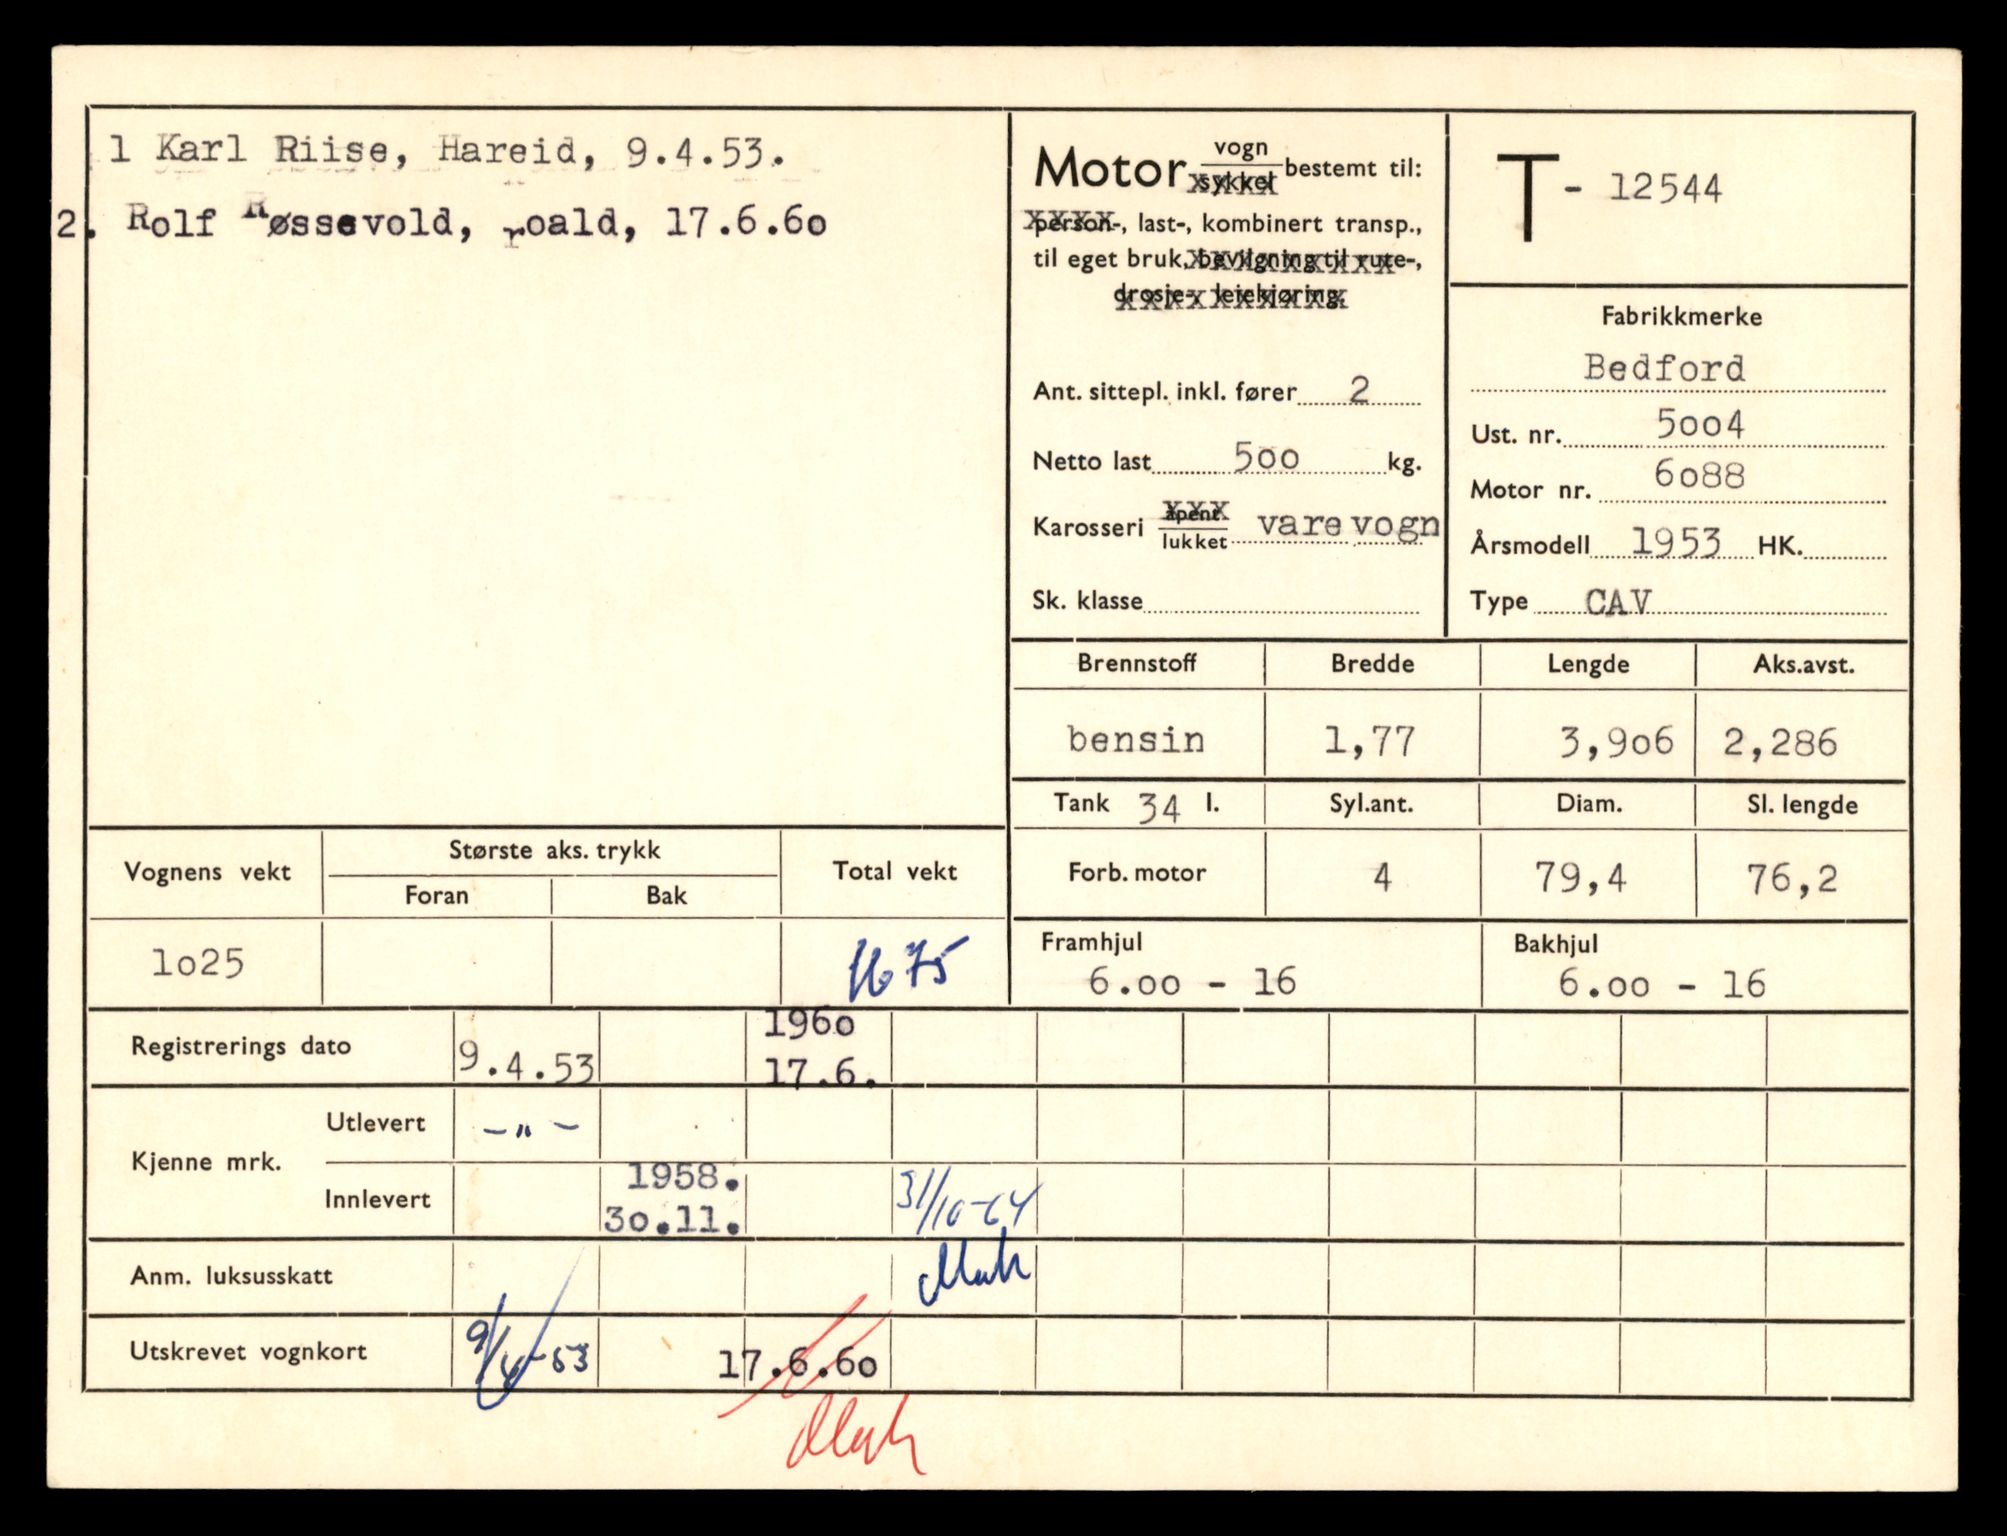 1 Karl Riise, Hareid, 9.4.53.
2. Rolf Røssevold, roald, 17.6.60
Motor vogn sykkel bestemt til:
person-, last-, kombinert transp.,
til eget bruk, bevilgning til rute-,
drosje-, leiekjøring.
Ant. sittepl. inkl. fører 2
Netto last 500 kg.
Karosseri åpent lukket varevogn
Sk. klasse
T - 12544
Fabrikkmerke
Bedford
Ust. nr. 5004
Motor nr. 6088
Årsmodell 1953 HK.
Type CAV
Brennstoff Bredde Lengde Aks.avst.
bensin 1,77 3,906 2,286
Tank 34 l. Syl.ant. Diam. Sl. lengde
Forb. motor 4 79,4 76,2
Framhjul Bakhjul
6.00 - 16 6.00 - 16
Vognens vekt Største aks. trykk Total vekt
Foran Bak
1025 1675
Registrerings dato 9.4.53 1960 17.6.
Kjenne mrk.
Utlevert - " -
Innlevert 1958. 30.11. 31/10-64
Anm. luksusskatt
Utskrevet vognkort 9/4-53 17.6.60